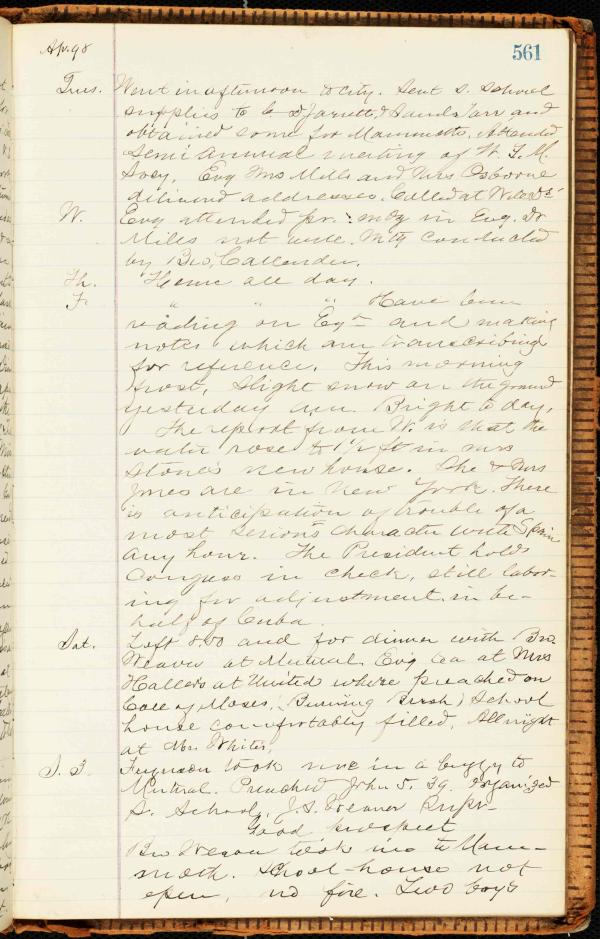 Ap. 98
561
Tues. Went in afternoon to city. Sent S. School
supplies to C. D. Jarrett, & Sands Tarr and
obtained some for Mammoth. Attended
Semi Annual meeting of W. F. M.
Socy, Evg Mrs Mills and Mrs Osborne
delivered addresses. Called at
W. Evg attended pr. mtg in Evg. Dr
Mills not well. Mtg conducted
by Bro. Callender.
Th. Home all day.
F. " " " Have been
reading on Egt and making
notes which am transcribing
for reference. This morning
frost, slight snow on the ground
yesterday a.m. Bright to day.
The report from W. is that the
water rose to 1 1/2 ft in Mrs
Stones new house. She & Mrs
Jones are in New York. There
is anticipation of trouble of a
most serious character with Spain
any hour. The President holds
Congress in check, still labor-
ing for adjustment in be-
half of Cuba.
Sat. Left 8.00 and for dinner with Bro.
Weaver at Mutual. Evg tea at Mrs
Hallers at United where preached on
Call of Moses, (Burning Bush) School
house comfortably filled. All night
at Mr. Whites.
S. 3. Ferguson took me in a buggy to
Mutual. Preached John 5. 39. Organized
S. School, J. S. Weaver Supt-
Good prospect
Bro Weaver took me to Mam-
moth. School-house not
open, no fire. Two boys